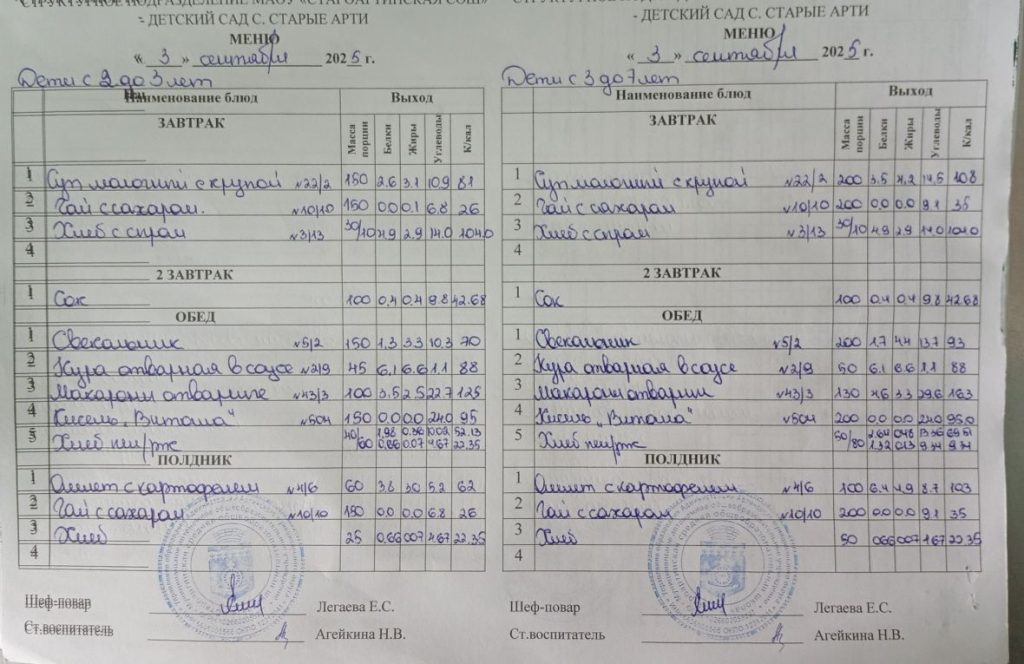 СТРУКТУРНОЕ ПОДРАЗДЕЛЕНИЕ МАОУ «СТАРОАРТИНСКАЯ СОШ»
- ДЕТСКИЙ САД С. СТАРЫЕ АРТИ
МЕНЮ
« 3 » сентября 2025 г.
Дети с 2 до 3 лет
Наименование блюд Выход
ЗАВТРАК Масса порции Белки Жиры Углеводы К/кал
1 Суп молочный с крупой №22/2 150 2.6 3.1 10.9 81
2 Чай с сахаром. №10/10 150 0.0 0.1 6.8 26
3 Хлеб с сыром №3/13 30/10 4.9 2.9 14.0 104.0
4
2 ЗАВТРАК
1 Сок 100 0.4 0.4 9.8 42.68
ОБЕД
1 Свекольник №5/2 150 1.3 3.3 10.3 70
2 Кура отварная в соусе №2/9 45 6.1 6.6 1.1 88
3 Макароны отварные №43/3 100 3.5 2.5 22.7 125
4 Кисель "Витошка" №504 150 0.0 0.0 24.0 95
5 Хлеб пш/рж 40/60 1.98 0.36 10.02 52.13
0.66 0.07 4.67 22.35
ПОЛДНИК
1 Омлет с картофелем №4/6 60 3.8 3.0 5.2 62
2 Чай с сахаром №10/10 150 0.0 0.0 6.8 26
3 Хлеб 25 0.66 0.07 4.67 22.35
4
Шеф-повар Легаева Е.С.
Ст.воспитатель Агейкина Н.В.
- ДЕТСКИЙ САД С. СТАРЫЕ АРТИ
МЕНЮ
« 3 » сентября 2025 г.
Дети с 3 до 7 лет
Наименование блюд Выход
ЗАВТРАК Масса порции Белки Жиры Углеводы К/кал
1 Суп молочный с крупой №22/2 200 3.5 4.2 14.5 108
2 Чай с сахаром №10/10 200 0.0 0.0 9.1 35
3 Хлеб с сыром №3/13 30/10 4.9 2.9 14.0 104.0
4
2 ЗАВТРАК
1 Сок 100 0.4 0.4 9.8 42.68
ОБЕД
1 Свекольник №5/2 200 1.7 4.4 13.7 93
2 Кура отварная в соусе №2/9 50 6.1 6.6 1.1 88
3 Макароны отварные №43/3 130 4.6 3.3 29.6 163
4 Кисель "Витошка" №504 200 0.0 0.0 24.0 95.0
5 Хлеб пш/рж 50/80 2.64 0.48 13.36 69.51
1.32 0.13 9.34
ПОЛДНИК
1 Омлет с картофелем №4/6 100 6.4 4.9 8.7 103
2 Чай с сахаром №10/10 200 0.0 0.0 9.1 35
3 Хлеб 50 0.66 0.07 22.35
4
Шеф-повар Легаева Е.С.
Ст.воспитатель Агейкина Н.В.